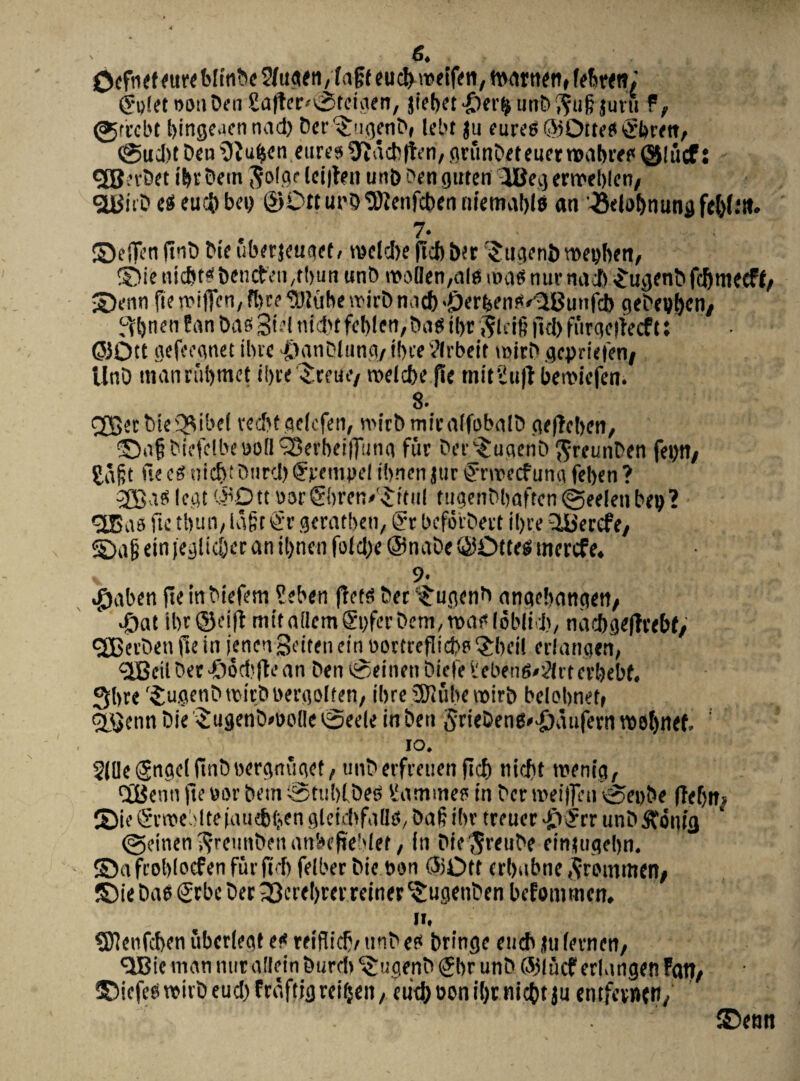 6.
Oefnet eure blinde Augen, laßt euch weisen, warnen, lehren,
Eylet von den Laster-Steigen, ziehet Hertz und Fuß zurü k,
Strebt hingegen nach der Tugend, lebt zu eures GOttes Ehren,
Sucht den Nutzen eures Nächsten, gründet euer wahres Glück:
Werdet ihr dem Folge leisten und den guten Weg erwehlen,
Wird es euch bey GOtt und Menschen niemahls an Belohnung fehlen.
7.
Dessen sind die überzeuget, welche sich der Tugend weyhen,
Die nichts dencken, thun und wollen, als was nur nach Tugend schmeckt,
Denn sie wissen, ihre Mühe wird nach Hertzens-Wunsch gedeyhen,
Ihnen kan das Ziel nicht fehlen, das ihr Fleiß sich fürgesteckt:
GOtt geseegnet ihre Handlung, ihre Arbeit wird gepriesen,
Und man rühmet ihre Treue, welche sie mit Lust bewiesen.
8.
Wer die Bibel recht gelesen, wird mir alsobald gestehen,
Daß dieselbe voll Verheissung für der Tugend Freunden seyn,
Läßt sie es nicht durch Exempel ihnen zur Erweckung sehen?
Was legt GOtt vor Ehren-Titul tugendhaften Seelen bey?
Was sie thun, läßt Er gerathen, Er befördert ihre Wercke,
Daß ein jeglicher an ihnen solche Gnade GOttes mercke.
9.
Haben sie in diesem Leben stets der Tugend angehangen,
Hat ihr Geist mit allem Eyfer dem, was löblich, nachgestrebt,
Werden sie in jenen Zeiten ein vortreflichs Theil erlangen,
Weil der Höchste an den Seinen diese Lebens-Art erhebt.
Ihre Tugend wird vergolten, ihre Mühe wird belohnet,
Wenn die Tugend-volle Seele in den Friedens-Häusern wohnet.
10.
Alle Engel sind vergnüget, und erfreuen sich nicht wenig,
Wenn sie vor dem Stuhl des Lammes in der weissen Seyde stehn,
Die Erwehlte jauchtzen gleichfalls, daß ihr treuer HErr und König
Seinen Freunden anbefiehlet, in die Freude einzugehn.
Da frohlocken für sich selber die von GOtt erhabne Frommen,
Die das Erbe der Verehrer reiner Tugenden bekommen.
11.
Menschen überlegt es reiflich, und es bringe euch zu lernen,
Wie man nur allein durch Tugend Ehr und Glück erlangen kan,
Dieses wird euch kräftig reitzen, euch von ihr nicht zu entfernen,
Denn